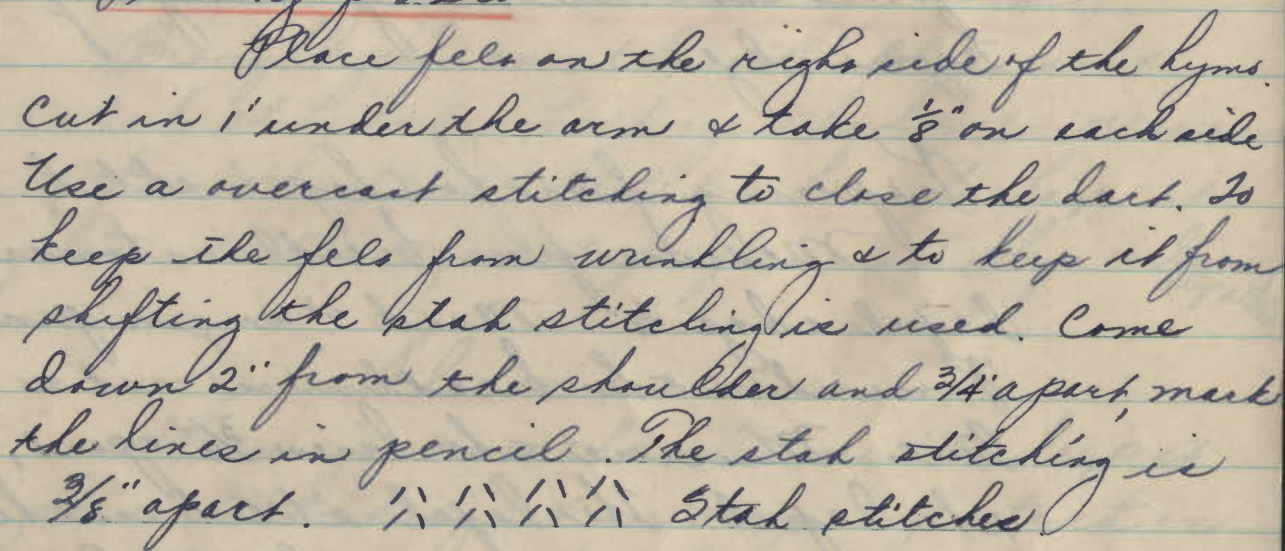 Place felt on the right side of the hymo.
Cut in 1" under the arm & take 1/8" on each side
Use a overcast stitching to close the dart. To
keep the felt from wrinkling & to keep it from
shifting the stab stitching is used. Come
down 2" from the shoulder and 3/4" apart, mark
the lines in pencil. The stab stitching is
3/8" apart. Stab stitches